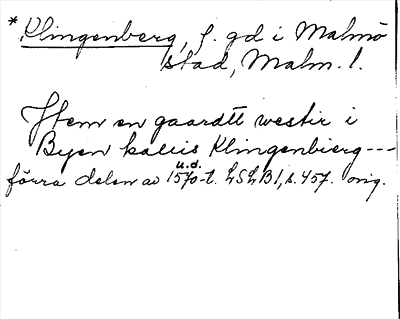 *Klingenberg, f. gd i Malmö
stad, Malm. l.
Jtem en gaardtt westir i
Byen kaliis Klingenbierg ---
u.d.
förra delen av 1570-t. LSLB 1, s. 457. orig.